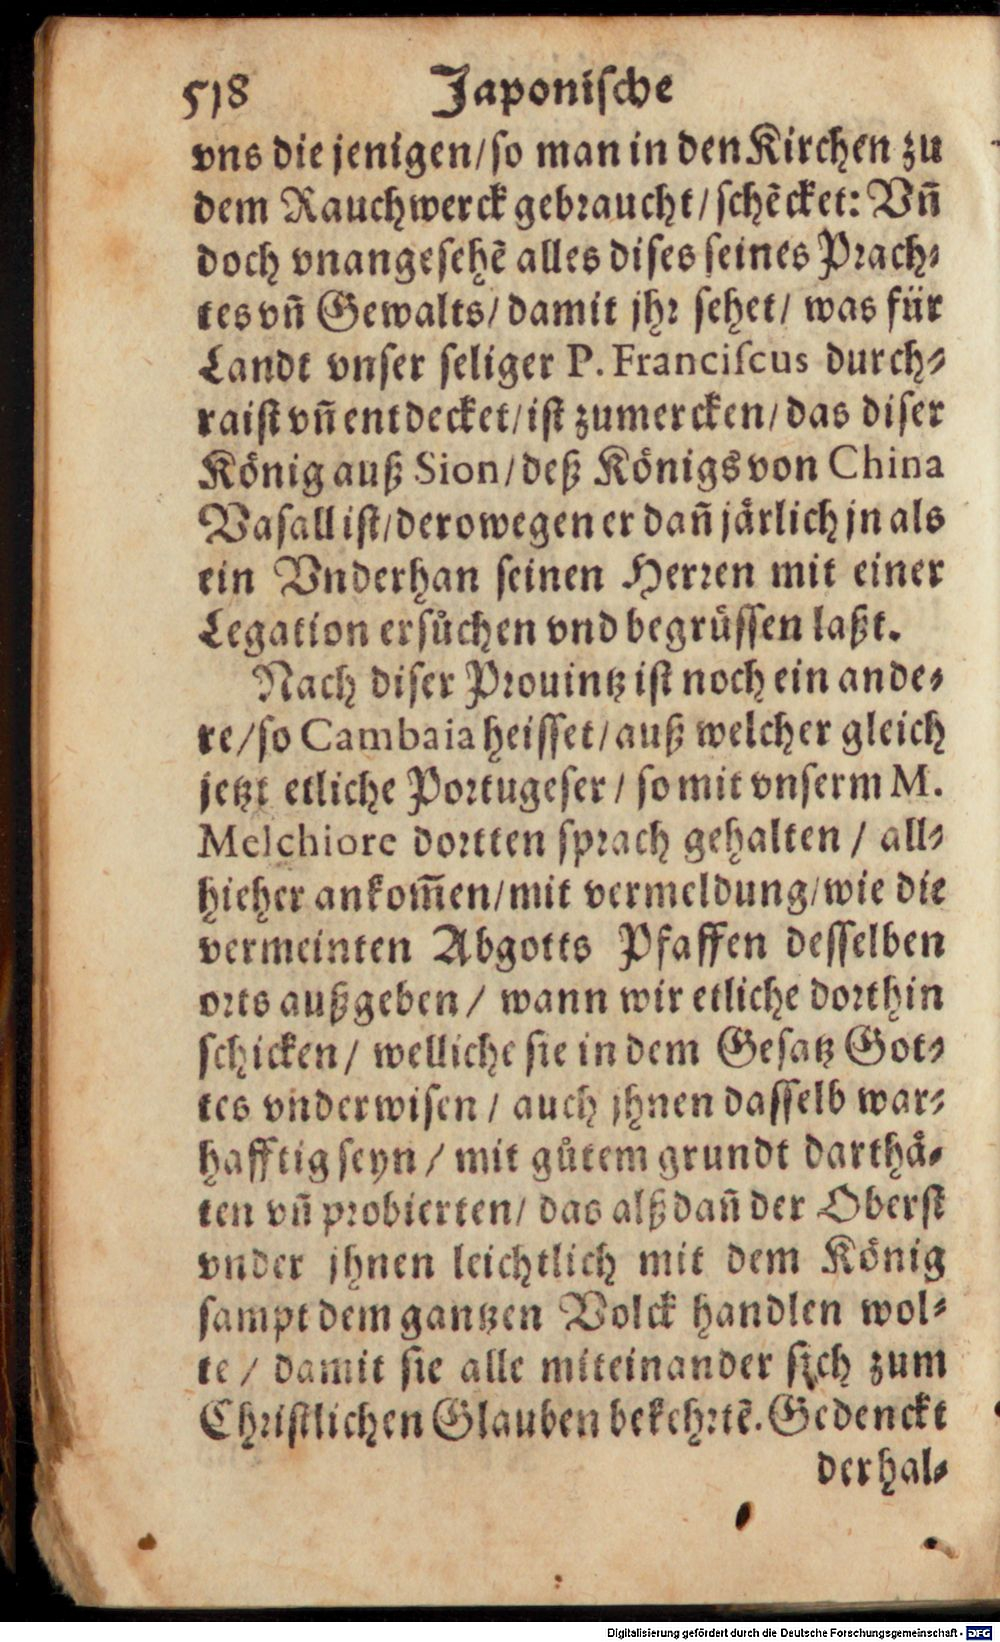 518 Japonische
vns die jenigen/so man in den Kirchen zu
dem Rauchwerck gebraucht/schẽcket: Vñ
doch vnangesehẽ alles dises seines Prach-
tes vñ Gewalts/damit jhr sehet/ was für
Landt vnser seliger P. Franciscus durch-
raist vñ entdecket/ist zumercken/das diser
König auß Sion/deß Königs von China
Vasall ist/derowegen er dañ jaͤrlich jn als
ein Vnderhan seinen Herren mit einer
Legation ersuͦchen vnd begruͤssen laßt.
Nach diser Prouintz ist noch ein ande-
re/so Cambaia heisset/auß welcher gleich
jetzt etliche Portugeser/ so mit vnserm M.
Melchiore dortten sprach gehalten / all-
hieher ankom̃en/mit vermeldung/wie die
vermeinten Abgotts Pfaffen desselben
orts außgeben/ wann wir etliche dorthin
schicken/ welliche sie in dem Gesatz Got-
tes vnderwisen / auch jhnen dasselb war-
hafftig seyn / mit guͦtem grundt darthaͤ-
ten vñ probierten/ das alßdañ der Oberst
vnder jhnen leichtlich mit dem König
sampt dem gantzen Volck handlen wol-
te / damit sie alle miteinander sich zum
Christlichen Glauben bekehrtẽ. Gedenckt
derhal-
Digitalisierung gefördert durch die Deutsche Forschungsgemeinschaft - DFG